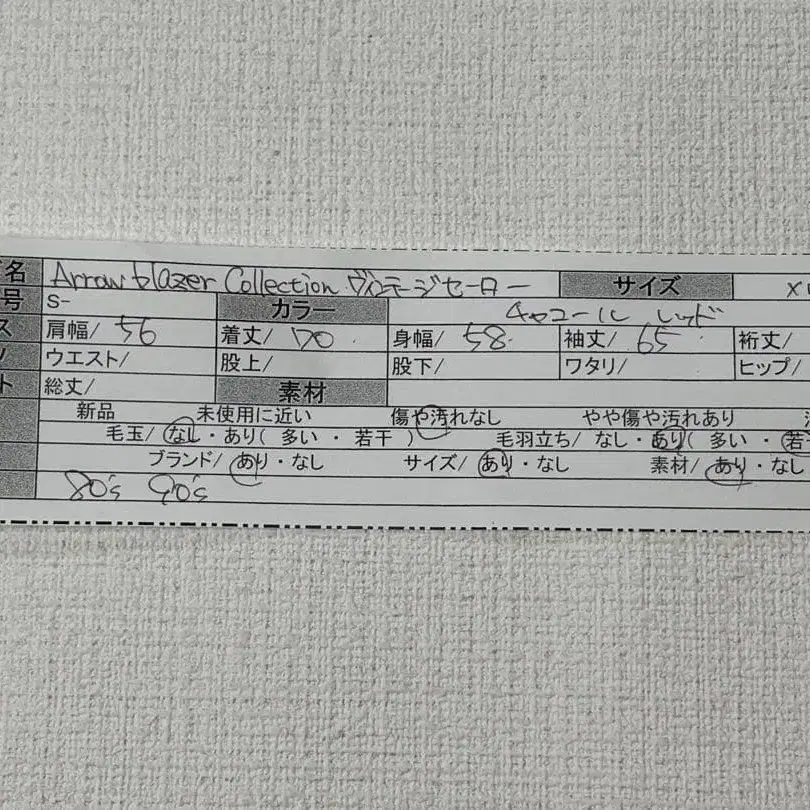 名 Arrow blazer Collection ヴィンテージセーター サイズ
号 S- カラー チャコール レッド
ス 肩幅/ 56 着丈/ 70 身幅/ 58 袖丈/ 65 裄丈/
ウエスト/ 股上/ 股下/ ワタリ/ ヒップ/
ト 総丈/ 素材
新品 未使用に近い 傷や汚れなし やや傷や汚れあり
毛玉/ なし・あり( 多い ・ 若干 ) 毛羽立ち/ なし・あり( 多い ・ 若干
ブランド/ あり・なし サイズ/ あり・なし 素材/ あり・なし
80's 90's